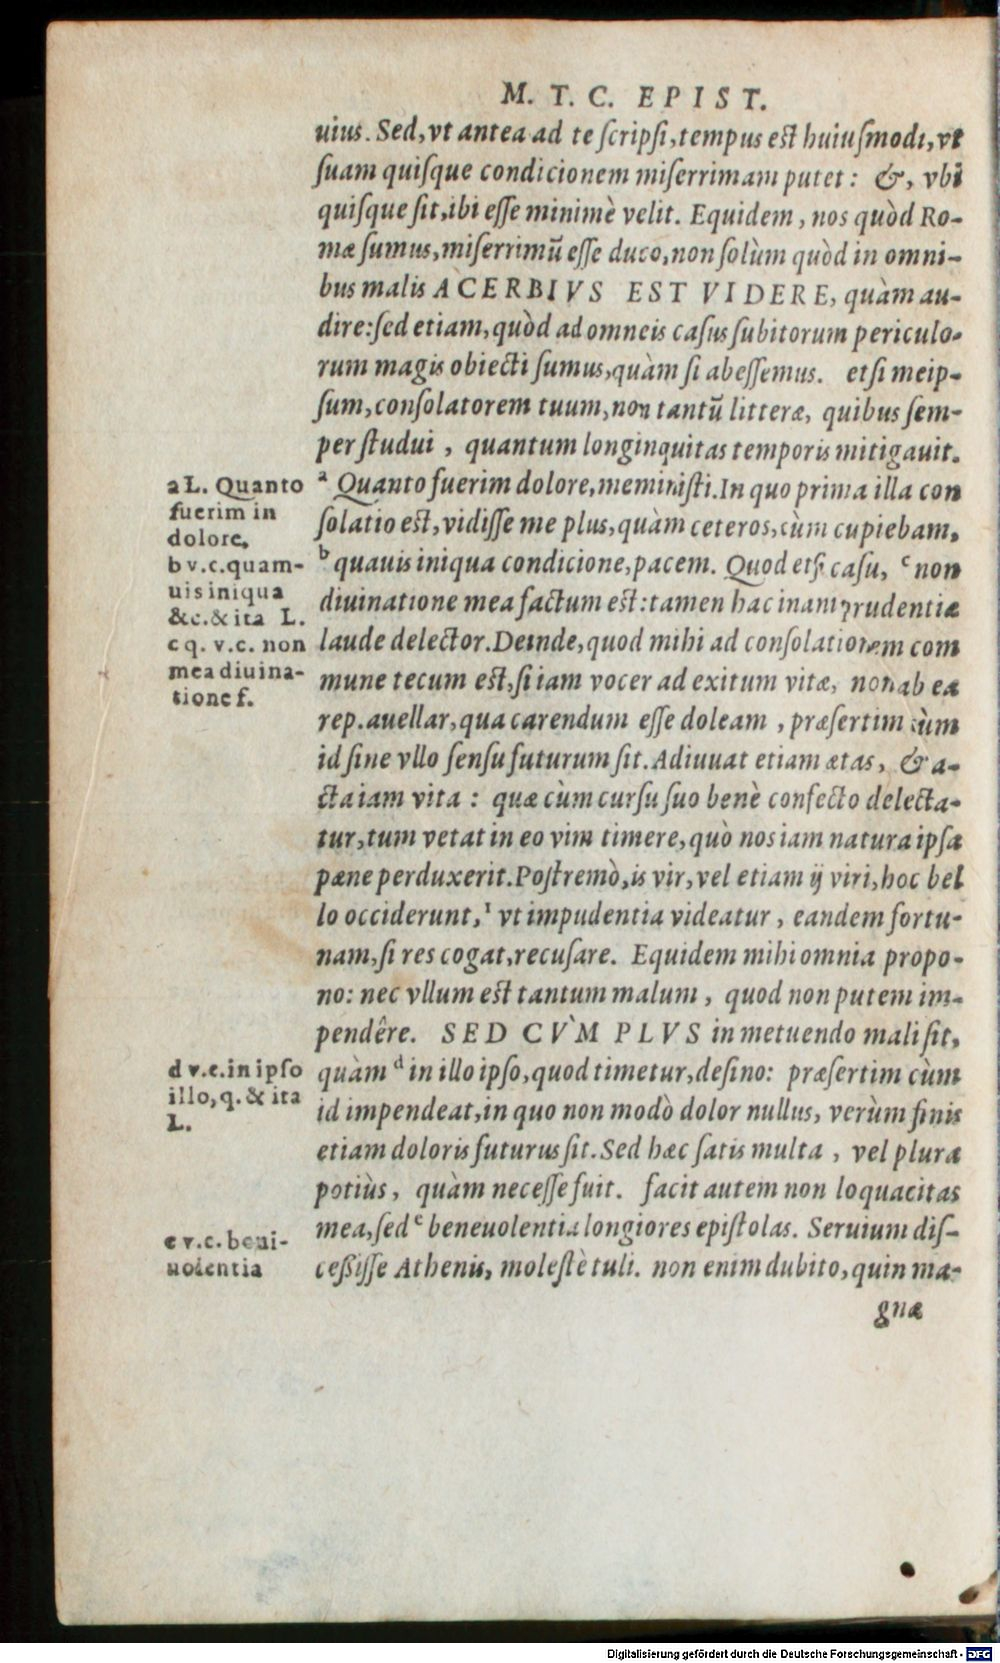 M. T. C. EPIST.
uius. Sed, vt antea ad te scripsi, tempus est huiusmodi, vt
suam quisque condicionem miserrimam putet: &, vbi
quisque sit, ibi esse minimè velit. Equidem, nos quòd Ro-
mæ sumus, miserrimũ esse duco, non solùm quòd in omni-
bus malis ACERBIVS EST VIDERE, quàm au-
dire: sed etiam, quòd ad omneis casus subitorum periculo-
rum magis obiecti sumus, quàm si abessemus. etsi meip-
sum, consolatorem tuum, non tantũ litteræ, quibus sem-
per studui, quantum longinquitas temporis mitigauit.
a Quanto fuerim dolore, meministi. In quo prima illa con
solatio est, vidisse me plus, quàm ceteros, cùm cupiebam,
b quauis iniqua condicione, pacem. Quod etsi casu, c non
diuinatione mea factum est: tamen hac inani prudentiæ
laude delector. Deinde, quod mihi ad consolationem com
mune tecum est, si iam vocer ad exitum vitæ, non ab ea
rep. auellar, qua carendum esse doleam, præsertim cùm
id sine vllo sensu futurum sit. Adiuuat etiam ætas, & a-
cta iam vita: quæ cùm cursu suo benè confecto delecta-
tur, tum vetat in eo vim timere, quò nos iam natura ipsa
pæne perduxerit. Postremò, is vir, vel etiam ij viri, hoc bel
lo occiderunt, 1 vt impudentia videatur, eandem fortu-
nam, si res cogat, recusare. Equidem mihi omnia propo-
no: nec vllum est tantum malum, quod non putem im-
pendêre. SED CV̀M PLVS in metuendo mali sit,
quàm d in illo ipso, quod timetur, desino: præsertim cùm
id impendeat, in quo non modò dolor nullus, verùm finis
etiam doloris futurus sit. Sed hæc satis multa, vel plura
potiùs, quàm necesse fuit. facit autem non loquacitas
mea, sed e beneuolentia longiores epistolas. Seruium dis-
cessisse Athenis, molestè tuli. non enim dubito, quin ma-
gnæ
a L. Quanto
fuerim in
dolore.
b v.c. quam-
uis iniqua
&c. & ita L.
c q. v.c. non
mea diuina-
tione f.
d v.c. in ipso
illo, q. & ita
L.
e v.c. beni-
uolentia
Digitalisierung gefördert durch die Deutsche Forschungsgemeinschaft - DFG